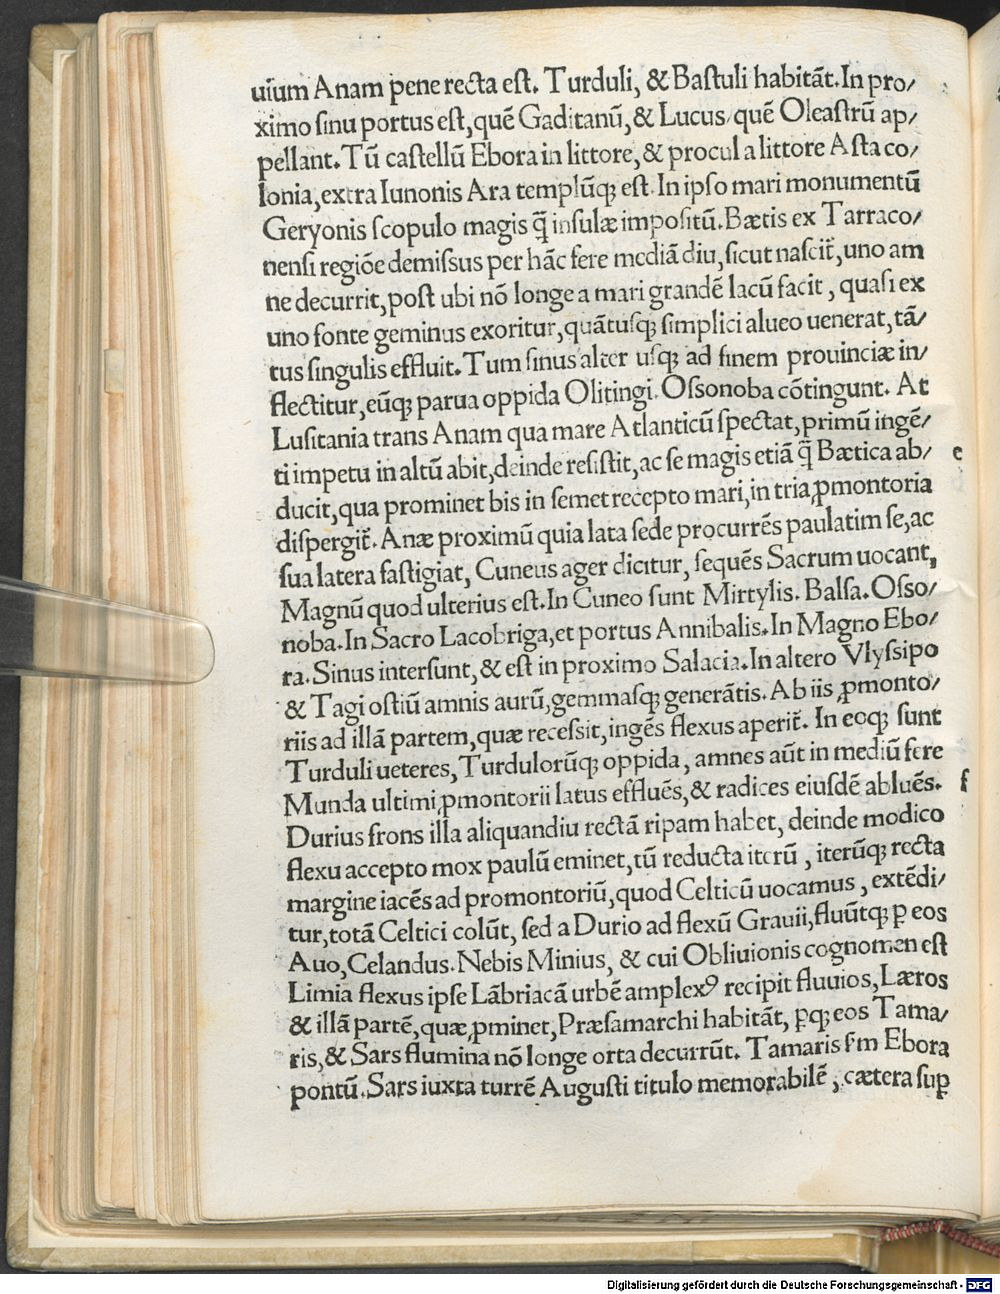 uium Anam pene recta est. Turduli, & Bastuli habitãt. In pro/
ximo sinu portus est, quẽ Gaditanũ, & Lucus/ quẽ Oleastrũ ap/
pellant. Tũ castellũ Ebora in littore, & procul a littore Asta co/
lonia, extra Iunonis Ara templũqꝫ est. In ipso mari monumentũ
Geryonis scopulo magis q̃ insulæ impositũ. Bætis ex Tarraco/
nensi regiõe demissus per hãc fere mediã diu, sicut nascit̃, uno am
ne decurrit, post ubi nõ longe a mari grandẽ lacũ facit, quasi ex
uno fonte geminus exoritur, quãtusqꝫ simplici alueo uenerat, tã/
tus singulis effluit. Tum sinus alter usqꝫ ad finem prouinciæ in/
flectitur, eũqꝫ parua oppida Olitingi. Ossonoba cõtingunt. At
Lusitania trans Anam qua mare Atlanticũ spectat, primũ ingẽ/
ti impetu in altũ abit, deinde resistit, ac se magis etiã q̃ Bætica ab/
e
ducit, qua prominet bis in semet recepto mari, in tria ꝓmontoria
dispergit̃. Anæ proximũ quia lata sede procurrẽs paulatim se, ac
sua latera fastigiat, Cuneus ager dicitur, sequẽs Sacrum uocant,
Magnũ quod ulterius est. In Cuneo sunt Mirtylis. Balsa. Osso/
noba. In Sacro Lacobriga, et portus Annibalis. In Magno Ebo/
ra. Sinus intersunt, & est in proximo Salacia. In altero Vlyssipo
& Tagi ostiũ amnis aurũ, gemmasqꝫ generãtis. Ab iis ꝓmonto/
riis ad illã partem, quæ recessit, ingẽs flexus aperit̃. In eoqꝫ sunt
Turduli ueteres, Turdulorũqꝫ oppida, amnes aũt in mediũ fere
Munda ultimi ꝓmontorii latus effluẽs, & radices eiusdẽ abluẽs.
f
Durius frons illa aliquandiu rectã ripam habet, deinde modico
flexu accepto mox paulũ eminet, tũ reducta iterũ, iterũqꝫ recta
margine iacẽs ad promontoriũ, quod Celticũ uocamus, extẽdi/
tur, totã Celtici colũt, sed a Durio ad flexũ Grauii, fluũtqꝫ ꝑ eos
Auo, Celandus. Nebis Minius, & cui Obliuionis cognomen est
Limia flexus ipse Lãbriacã urbẽ amplexꝰ recipit fluuios, Læros
& illã partẽ, quæ ꝓminet, Præsamarchi habitãt, ꝑqꝫ eos Tama/
ris, & Sars flumina nõ longe orta decurrũt. Tamaris sm̃ Ebora
pontũ. Sars iuxta turrẽ Augusti titulo memorabilẽ, cætera suꝑ
Digitalisierung gefördert durch die Deutsche Forschungsgemeinschaft - DFG